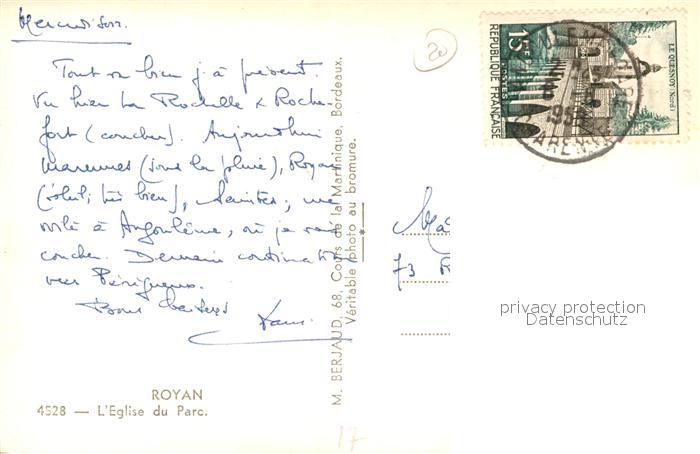 Mercredi soir.
Tout va bien j. à présent.
Vu hier La Rochelle & Roche-
fort (coucher). Aujourd'hui
Marennes (sous la pluie), Royan
(soleil, très bien), Saintes; me
voilà à Angoulême, où je vais
coucher. Demain continuation
vers Périgueux.
Bons baisers
ROYAN
4528 — L'Eglise du Parc.
M. BERJAUD, 68, Cours de la Martinique, Bordeaux.
Véritable photo au bromure.
20
15F
POSTES
REPUBLIQUE FRANÇAISE
LE QUESNOY (Nord)
73
privacy protection
Datenschutz
17